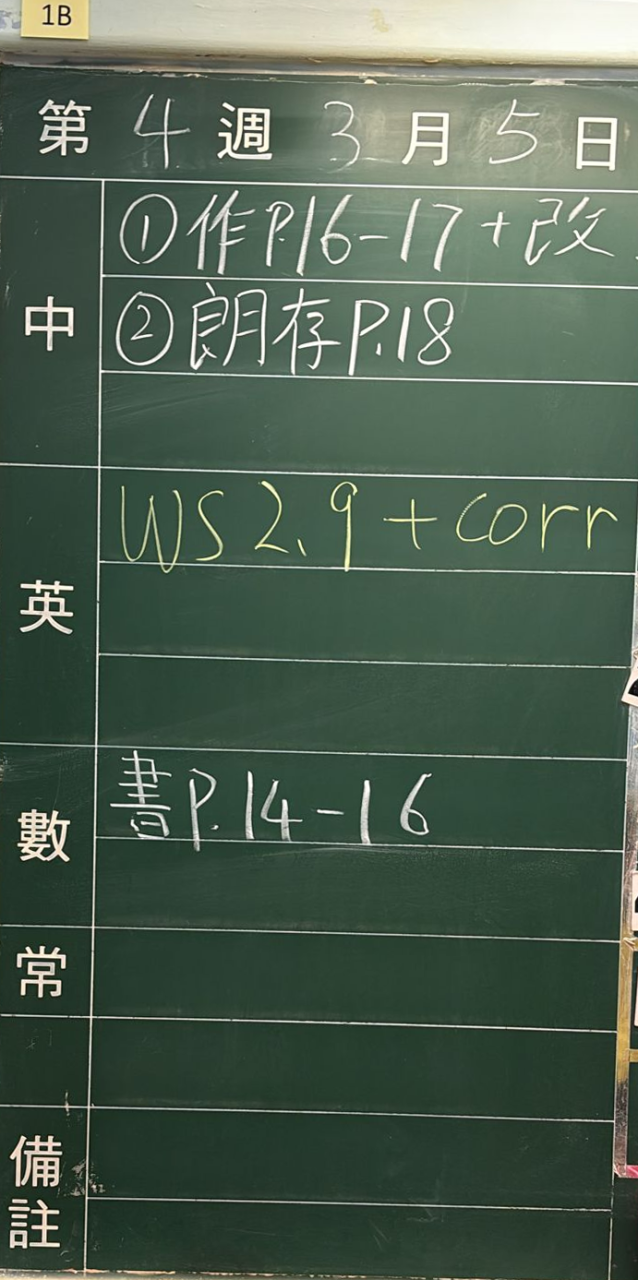 1B
第 4 週 3 月 5 日
中
①作P.16-17+改
②朗存P.18
英
WS 2.9 + corr
數
書P.14-16
常
備註